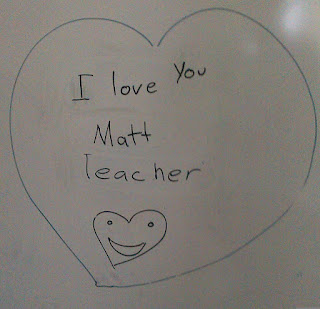 I love You
Matt
Teacher